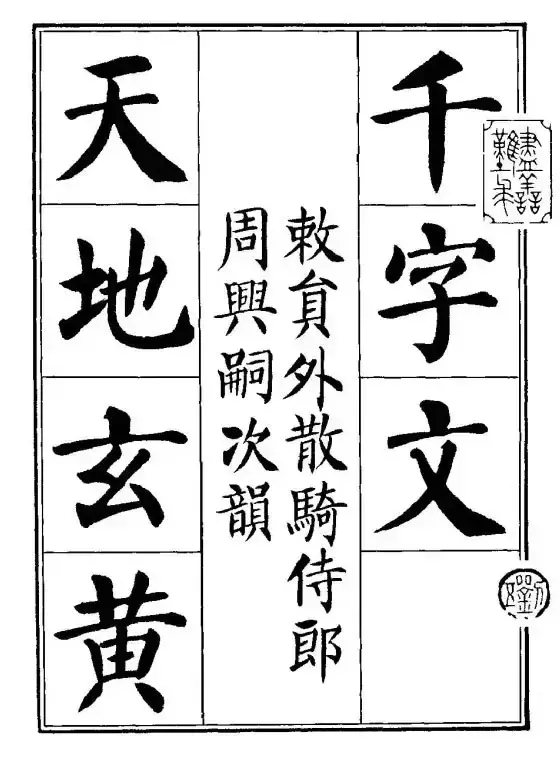 千字文
敕員外散騎侍郎
周興嗣次韻
天地玄黃